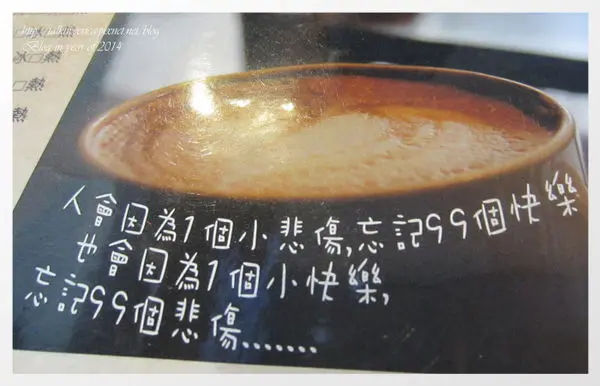 Blog in year of 2014
冰□熱
□熱
熱
人會因為1個小悲傷,忘記99個快樂
也會因為1個小快樂,
忘記99個悲傷.......